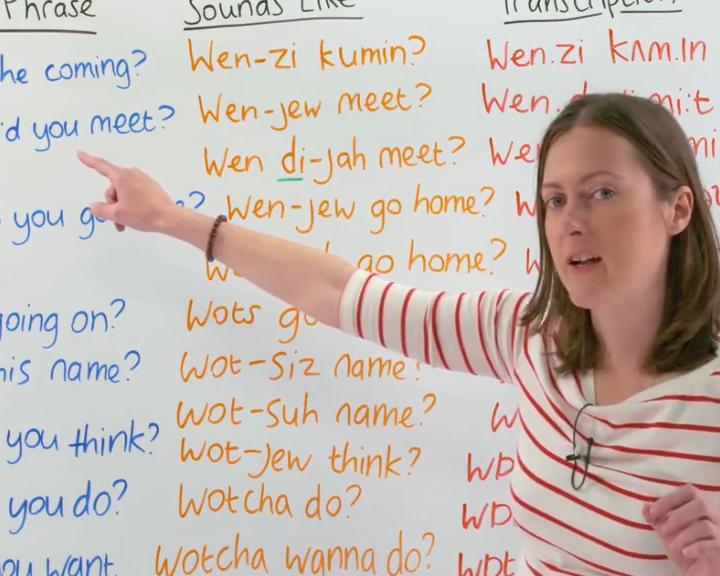 Phrase Sounds Like Transcription
he coming? Wen-zi kumin? Wen.zi kʌm.ɪn
d you meet? Wen-jew meet? Wen. mi:t
Wen di-jah meet? We mi
you g ? Wen-jew go home? W
go home?
going on? Wots go
his name? Wot-siz name?
Wot-suh name? W
you think? Wot-jew think? WD
you do? Wotcha do? WD
you want Wotcha wanna do? WDt